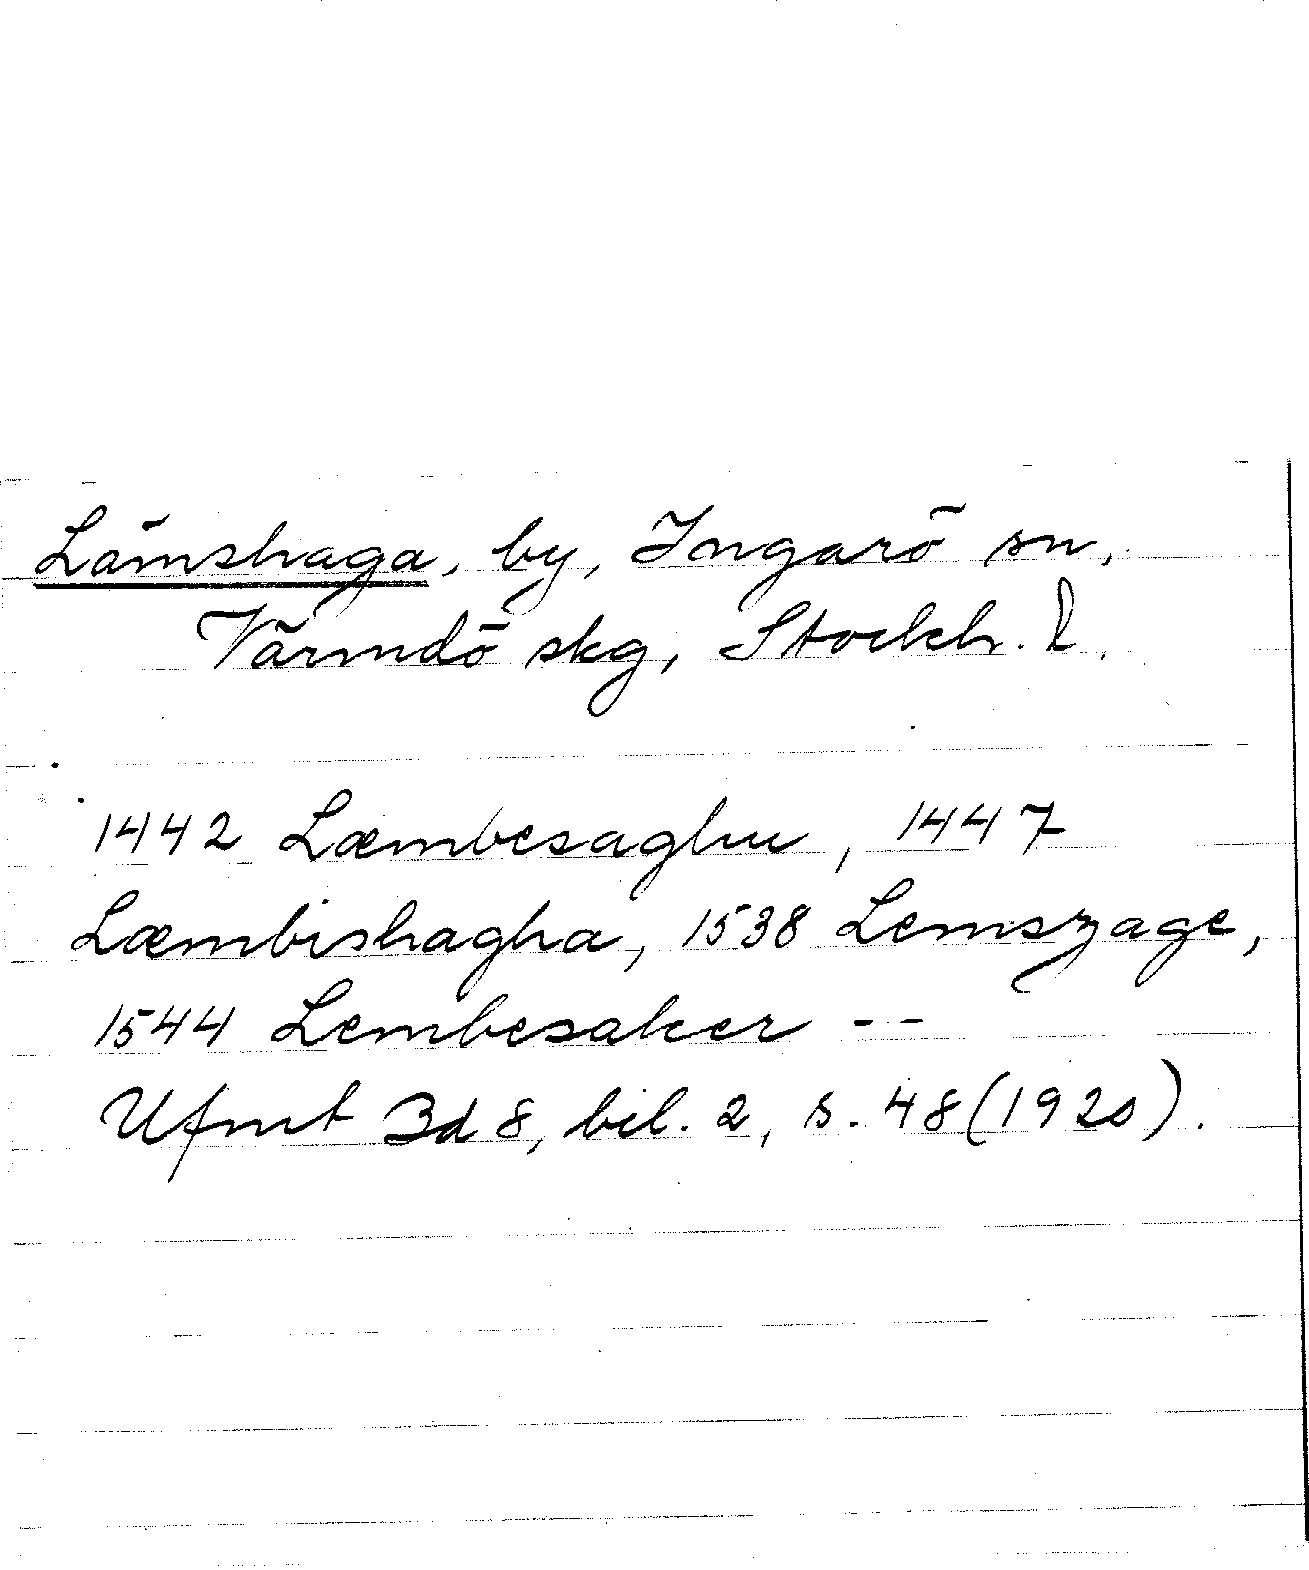 Lämshaga, by, Ingarö sn,
Värmdö skg, Stockh. l.
1442 Læmbesaghu, 1447
Læmbishagha, 1538 Lemszage,
1544 Lembesaker --
Ufmt Bd 8, bil. 2, s. 48 (1920).